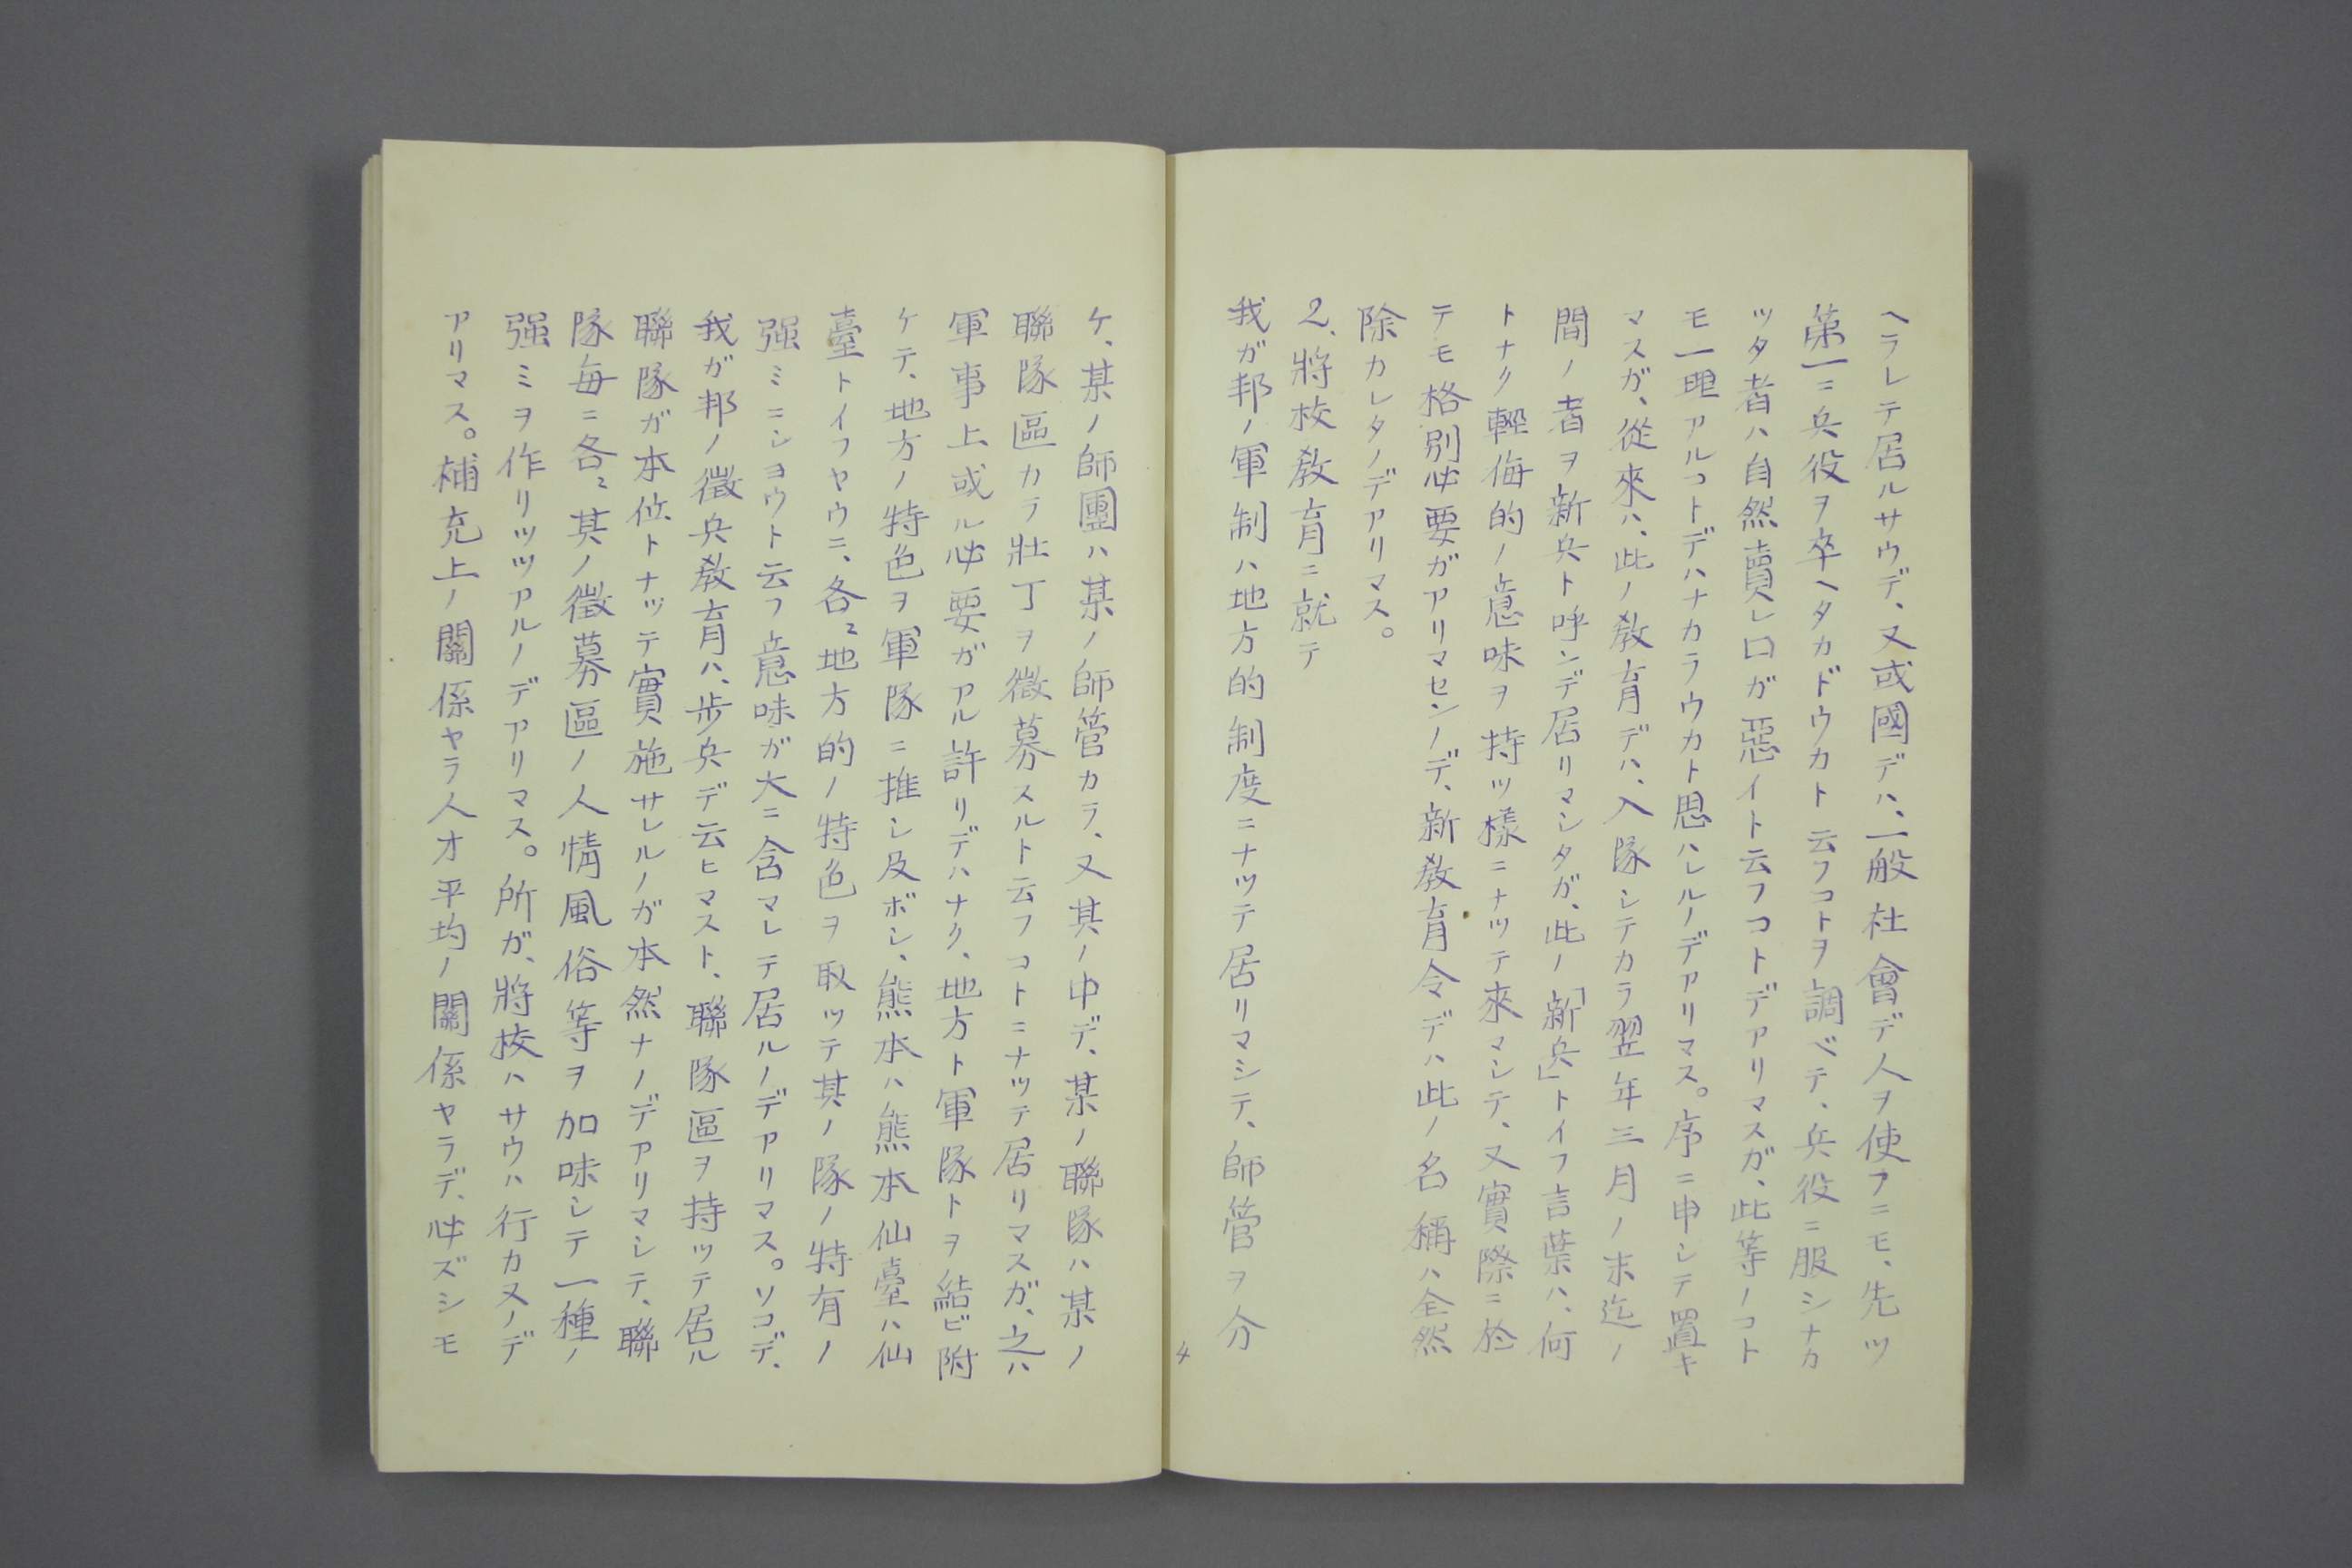 ヘラレテ居ルサウデ、又或國デハ、一般社會デ人ヲ使フニモ、先ツ
第一ニ兵役ヲ卒ヘタカドウカト云フコトヲ調ベテ、兵役ニ服シナカ
ツタ者ハ自然賣レ口ガ惡イト云フコトデアリマスガ、此等ノコト
モ一理アルコトデハナカラウカト思ハレルノデアリマス。序ニ申シテ置キ
マスガ、從來ハ、此ノ敎育デハ、入隊シテカラ翌年三月ノ末迄ノ
間ノ者ヲ新兵ト呼ンデ居リマシタガ、此ノ「新兵」トイフ言葉ハ、何
トナク輕侮的ノ意味ヲ持ツ樣ニナツテ來マシテ、又實際ニ於
テモ格別必要ガアリマセンノデ、新敎育令デハ此ノ名稱ハ全然
除カレタノデアリマス。
2、將校敎育ニ就テ
我ガ邦ノ軍制ハ地方的制度ニナツテ居リマシテ、師管ヲ分
4
ケ、某ノ師團ハ某ノ師管カラ、又其ノ中デ、某ノ聯隊ハ某ノ
聯隊區カラ壯丁ヲ徵募スルト云フコトニナツテ居リマスガ、之ハ
軍事上或ル必要ガアル許リデハナク、地方ト軍隊トヲ結ビ附
ケテ、地方ノ特色ヲ軍隊ニ推シ及ボシ、熊本ハ熊本仙臺ハ仙
臺トイフヤウニ、各〻地方的ノ特色ヲ取ツテ其ノ隊ノ特有ノ
强ミニシヨウト云フ意味ガ大ニ含マレテ居ルノデアリマス。ソコデ、
我ガ邦ノ徵兵敎育ハ、步兵デ云ヒマスト、聯隊區ヲ持ツテ居ル
聯隊ガ本位トナツテ實施サレルノガ本然ナノデアリマシテ、聯
隊每ニ各〻其ノ徵募區ノ人情風俗等ヲ加味シテ一種ノ
强ミヲ作リツツアルノデアリマス。所ガ、將校ハサウハ行カヌノデ
アリマス。補充上ノ關係ヤラ人才平均ノ關係ヤラデ、必ズシモ